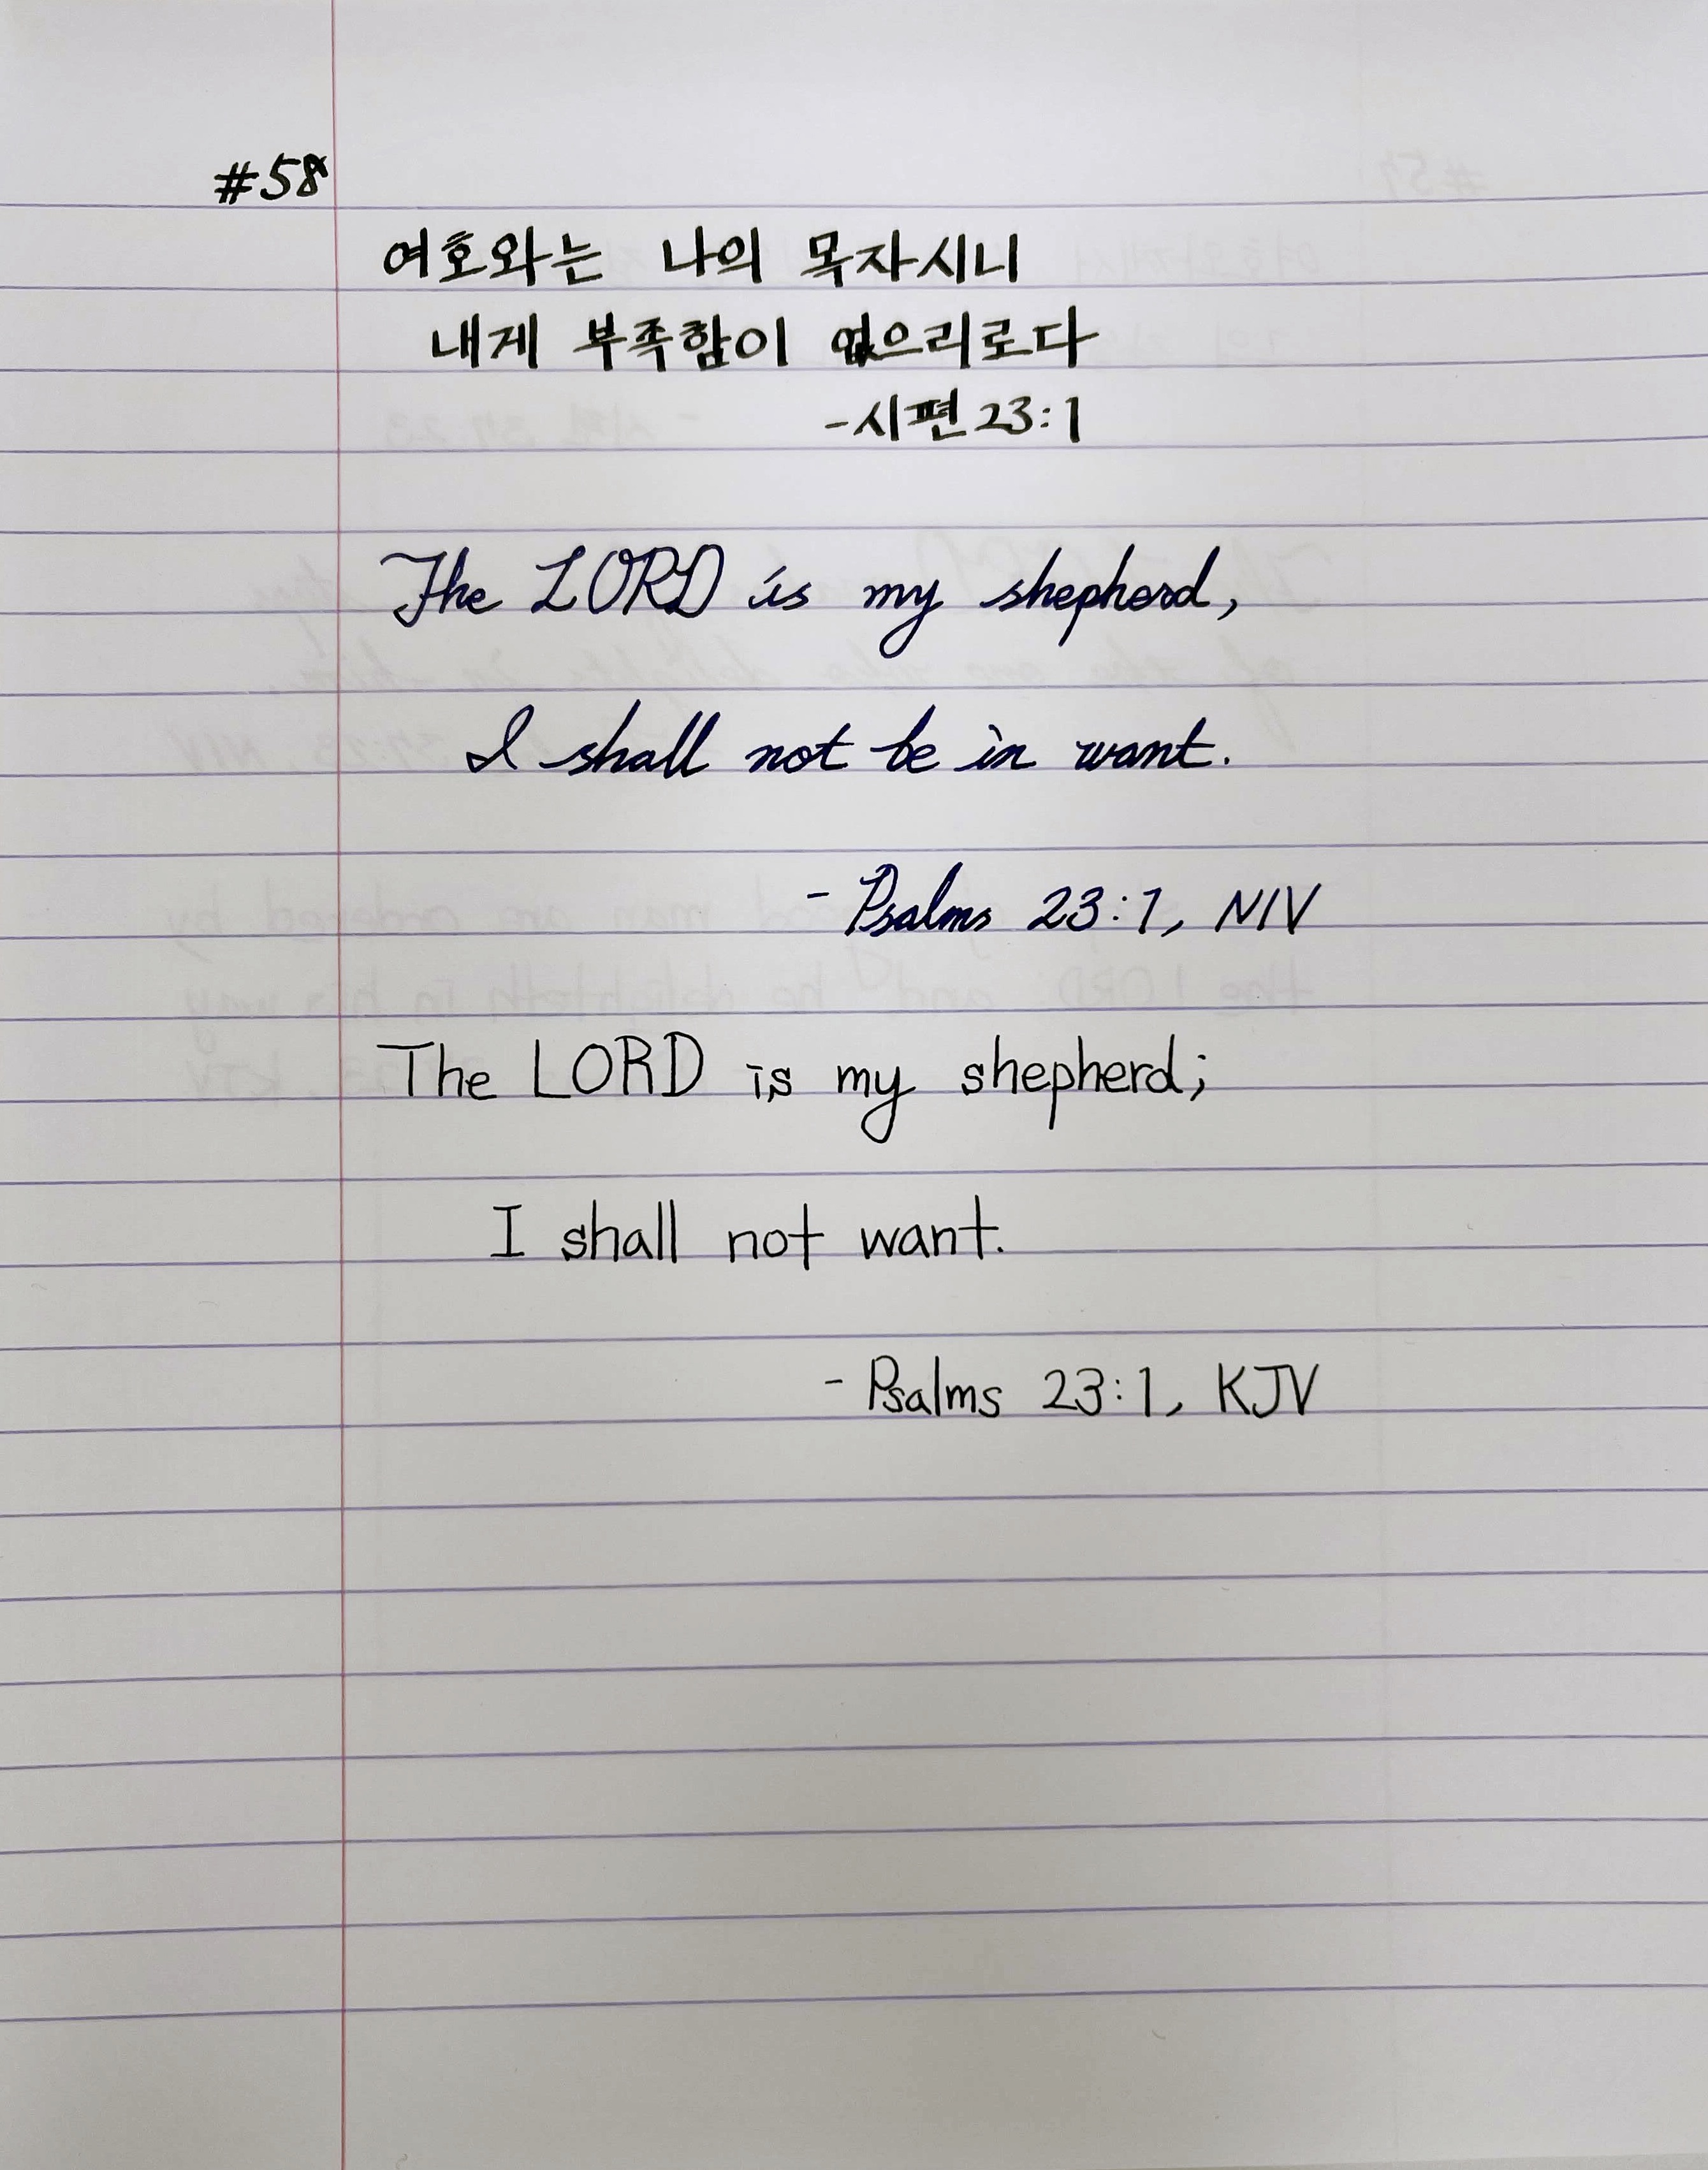 #58
여호와는 나의 목자시니
내게 부족함이 없으리로다
-시편 23:1
The LORD is my shepherd,
I shall not be in want.
- Psalms 23:1, NIV
The LORD is my shepherd;
I shall not want.
- Psalms 23:1, KJV